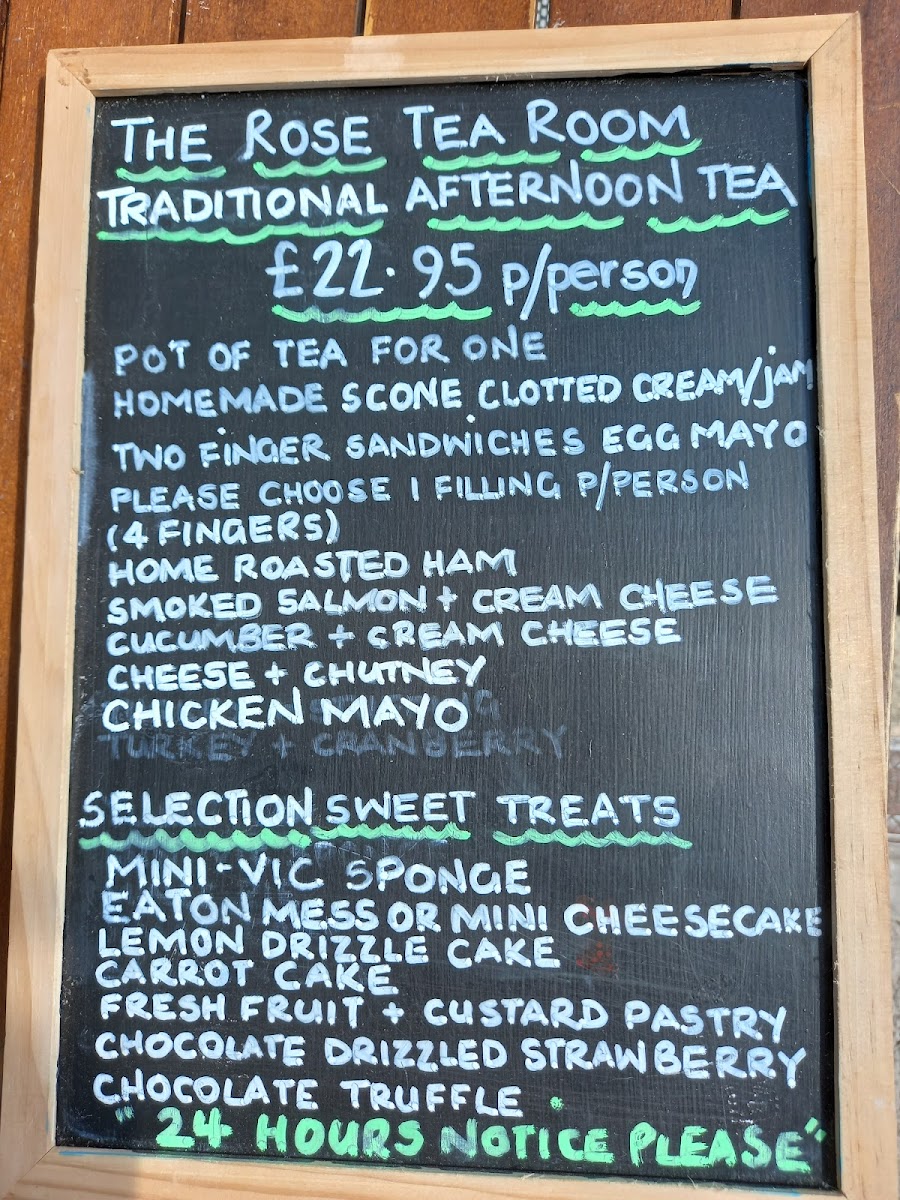 THE ROSE TEA ROOM
TRADITIONAL AFTERNOON TEA
£22.95 p/person
POT OF TEA FOR ONE
HOMEMADE SCONE CLOTTED CREAM/jAM
TWO FiNGER SANDWiCHES EGG MAYO
PLEASE CHOOSE 1 FILLING P/PERSON
(4 FINGERS)
HOME ROASTED HAM
SMOKED SALMON + CREAM CHEESE
CUCUMBER + CREAM CHEESE
CHEESE + CHUTNEY
CHICKEN MAYO
TURKEY + CRANBERRY
SELECTION SWEET TREATS
MINI-VIC SPONGE
EATON MESS OR MINI CHEESECAKE
LEMON DRIZZLE CAKE
CARROT CAKE
FRESH FRUIT + CUSTARD PASTRY
CHOCOLATE DRIZZLED STRAWBERRY
CHOCOLATE TRUFFLE
"24 HOURS NOTICE PLEASE"